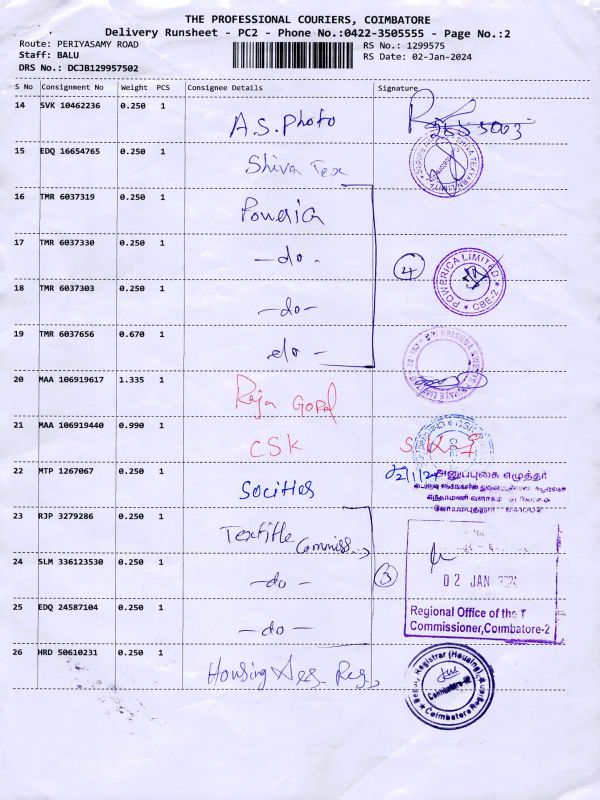 THE PROFESSIONAL COURIERS, COIMBATORE
Delivery Runsheet - PC2 - Phone No.:0422-3505555 - Page No.:2
Route: PERIYASAMY ROAD
RS No.: 1299575
Staff: BALU
RS Date: 02-Jan-2024
DRS No.: DCJB129957502
S No Consignment No Weight PCS Consignee Details Signature
14 SVK 10462236 0.250 1
A.S. Photo
15 EDQ 16654765 0.250 1
Shiva Tex
16 TMR 6037319 0.250 1
Powerica
17 TMR 6037330 0.250 1
-do-
4
POWERICA LIMITED
CBE-2
18 TMR 6037303 0.250 1
-do-
19 TMR 6037656 0.670 1
do -
20 MAA 106919617 1.335 1
Raja Gopal
21 MAA 106919440 0.990 1
CSK
22 MTP 1267067 0.250 1
Socities
02/1/24
அனுப்புகை எழுத்தர்
சிந்தாமணி வளாகம்
23 RJP 3279286 0.250 1
Textitle
Commiss..
24 SLM 336123530 0.250 1
-do-
3
02 JAN 2024
25 EDQ 24587104 0.250 1
-do-
Regional Office of the T
Commissioner, Coimbatore-2
26 HRD 50610231 0.250 1
Housing Ses. Reg.
Registrar (Housing)
Coimbatore Region